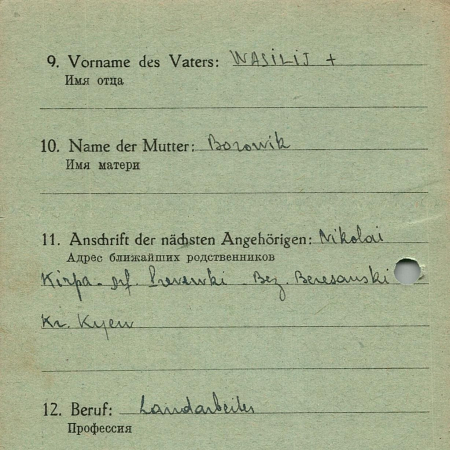 9. Vorname des Vaters: WASILIJ +
Имя отца
10. Name der Mutter: Borowik
Имя матери
11. Anschrift der nächsten Angehörigen: Nikolai
Адрес ближайших родственников
Kirpa - Bez. Beresanski
Kr. Kyew
12. Beruf: Landarbeiter
Профессия